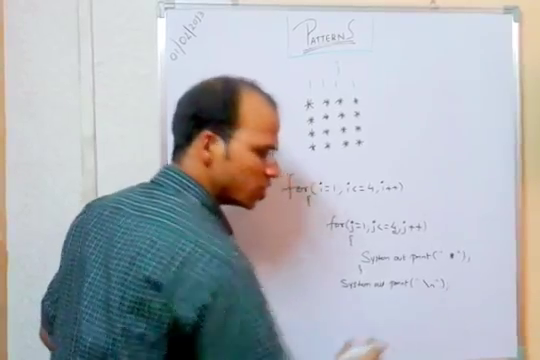 01/02/2013
PATTERNS
* * * *
* * * *
* * * *
* * * *
for(i=1, i<=4, i++)
{
for(j=1, j<=4, j++)
{
System out print(" * ");
}
System out print(" \n");